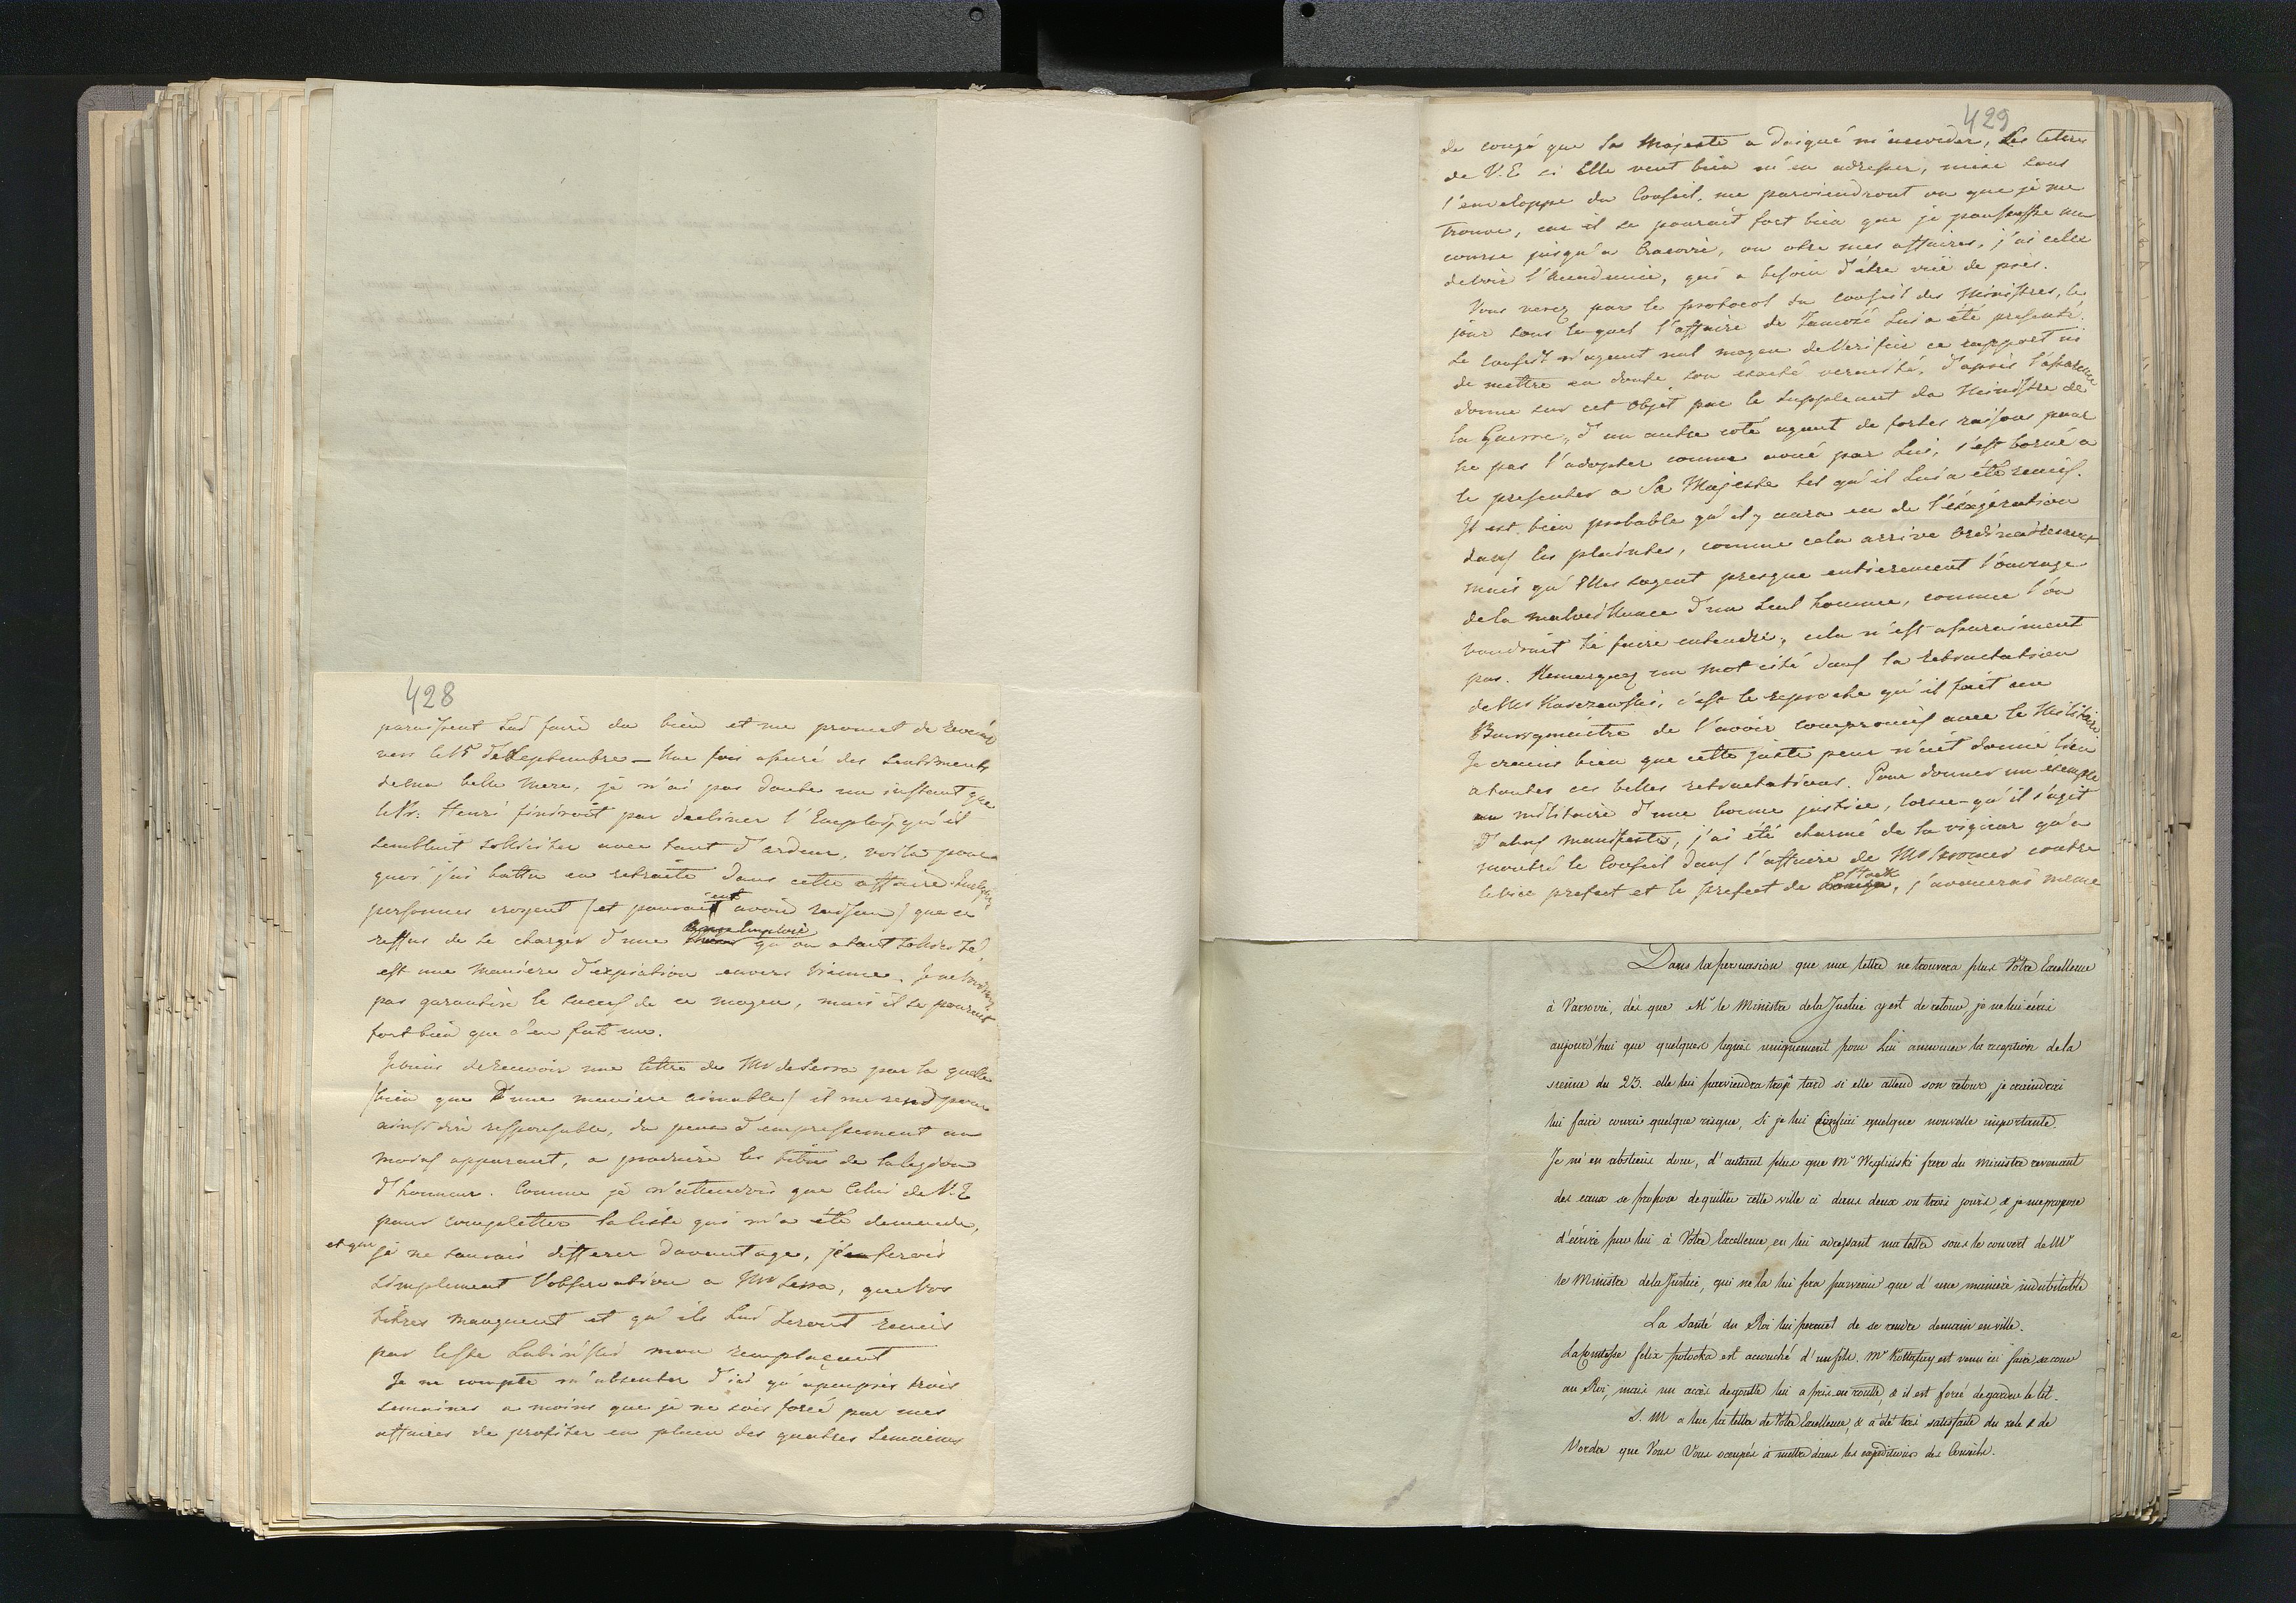 428
paraissent lui faire du bien et me promet de revenir
vers le 15 de Septembre — Une fois assuré des sentiments
de ma belle Mere, je n'ai pas douté un instant que
le Mr: Henri finiroit par decliner l'Employ, qu'il
semblait solliciter avec tant d'ardeur, voila pour
quoi j'ai battu en retraite dans cette affaire. Quelques
personnes croyent (et pouraient avoir raison) que ce
reffus de se charger d'une qu'on a tant solicité
est une maniere d'expiation envers Vienne. Je ne voudrois
pas garantir le succes de ce moyen, mais il se pourait
fort bien que c'en fut un.
Je viens de recevoir une lettre de Mr de Serra par la quelle
(bien que d'une maniere aimable) il me rend pour
ainsi dire responsable, du peu d'empressement au
moins apparent, a produire les titres de la legion
d'honneur. Comme je n'attendois que Celui de V. E
pour completter la liste qui m'a été demandé,
et que je ne saurais differer davantage, j'en ferois
simplement l'observation a Mr Serra, que Vos
titres manquent et qu'ils lui seront remis
par le Cte Lubinski mon remplaçant
Je ne compte m'absenter d'ici qu'apeuprès trois
semaines a moins que je ne sois forcé par mes
affaires de profiter en plein des quatres semaines
429
de congé que Sa Majesté a daigné m'accorder, Les lettres
de V. E si Elle veut bien m'en adresser, mise sous
l'enveloppe du Conseil, me parviendront ou que je me
trouve, car il se pourait fort bien que je poussasse une
course jusqu'a Cracovie, ou otre mes affaires, j'ai celle
de voir l'Academie, qui a besoin d'être vuë de près.
Vous verez par le protocol du conseil des Ministres, le
jour sous lequel l'affaire de Zamosc lui a été presenté.
Le Conseil n'ayant nul moyen de Verifier ce rapport ni
de mettre en doute son exacte veracité, d'après l'aparence
donné sur cet objet par le supplement du Ministre de
la Guerre, d'un autre coté ayant de fortes raisons pour
ne pas l'adopter comme avoué par Lui, s'est borné a
le presenter a Sa Majesté tel qu'il lui a été remis.
Il est bien probable qu'il y aura eu de l'exagération
dans les plaintes, comme cela arrive Ordinairement
mais qu'Elles soyent presque entierement l'ouvrage
de la malveillance d'un seul homme, comme l'on
voudrait le faire entendre, cela n'est aparaiment
pas. Remarquez un mot cité dans la retractation
de Mr Karczewski, c'est le reproche qu'il fait au
Bourgmaitre de l'avoir compromis avec le Militaire
Je crains bien que cette juste peur n'ait donné lieu
a toutes ces belles retractations. Pour donner un exemple
au militaire d'une bonne justice, lorsce-qu'il s'agit
d'abus manifestes, j'ai été charmé de la vigueur qu'a
montré le Conseil dans l'affaire de Mr contre
le vice prefect et le prefect de Płock, j'avouerai même
Dans la persuasion que ma lettre ne trouvera plus Votre Excellence
à Varsovie, dès que Mr le Ministre de la Justice y est de retour, je ne lui écris
aujourd'hui que quelques lignes uniquement pour Lui annoncer la reception de la
sienne du 23. elle lui parviendra trop tard si elle attend son retour, je craindrai
lui faire courir quelque risque, si je lui confiai quelque nouvelle importante.
Je m'en abstiens donc, d'autant plus que Mr Węgliński frere du Ministre revenant
des eaux se propose de quitter cette ville ci dans deux ou trois jours, & je me propose
d'écrire par lui à Votre Excellence, en lui adressant ma lettre sous le couvert de Mr
le Ministre de la Justice, qui ne la lui fera parvenir que d'une manière indubitable
La Santé du Roi lui permet de se rendre demain en ville.
La Comtesse felix potocka est accouché d'un fils. Mr Kołłątay est venu ici faire sa cour
au Roi, mais un accès de goutte lui a pris en route, & il est forcé de garder le lit.
S. M. a lue la lettre de Votre Excellence, & a été très satisfaite du zele & de
l'ordre que Vous Vous occupés à mettre dans les expeditions des Conseils.